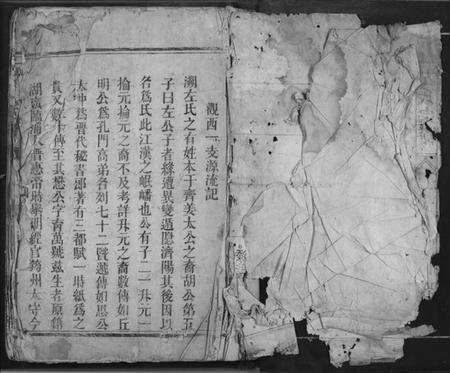 觀西一支源流記
溯左氏之有姓本于齊姜太公之裔胡公第五
子曰左公子者緣遭氏變遁隱濟陽其後因以
名爲氏此江漢之岷嶓也公有子二一丘元一
掄元掄元之裔不及考詳丘元之裔數傳如丘
明公爲孔門高弟台列七十二賢遞傳如思公
太冲爲晉代秘書郎著有三都賦一時紙爲之
貴又數十傳至其懋公字畜萬號兹生者原籍
湖廣隨浦人晉愍帝時業朝經官筠州太守今